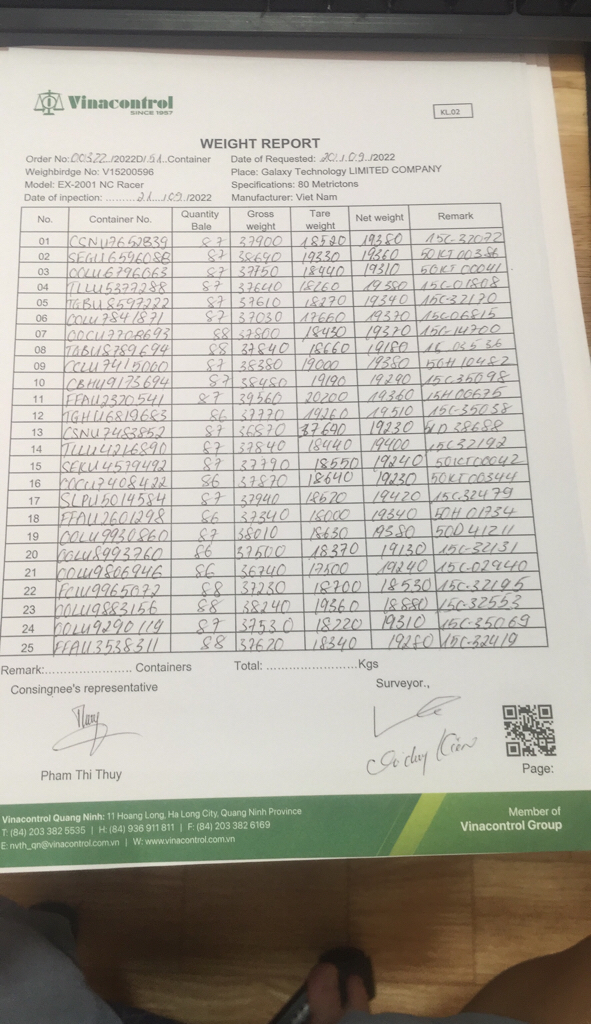 Vinacontrol
SINCE 1957
KL.02
WEIGHT REPORT
Order No: 00322/2022D/51 Container Date of Requested: 20/09/2022
Weighbirdge No: V15200596 Place: Galaxy Technology LIMITED COMPANY
Model: EX-2001 NC Racer Specifications: 80 Metrictons
Date of inpection: 21/09/2022 Manufacturer: Viet Nam
No. Container No. Quantity Bale Gross weight Tare weight Net weight Remark
01 CSNU7652839 87 37900 18520 19380 15C-32072
02 SEGU6596088 87 38690 19330 19360 50KT00386
03 OOLU6796063 87 37750 18440 19310 50KT00041
04 TLLU5377288 87 37640 18260 19380 15C-01808
05 TGBU8597222 87 37610 18270 19340 15C-32170
06 OOLU7841871 87 37030 17660 19370 15C06815
07 88 37800 18430 19370 15C-14700
08 88 37840 18660 19180
09 87 38380 19000 19380 50H10482
10 CBHU9173694 87 38480 19190 19290 15C35098
11 FFAU2320541 87 39560 20200 19360 15H00675
12 TGHU6819683 86 37770 19260 19510 15C-35038
13 CSNU7483852 87 36870 19230
14 TLLU4216890 87 37840 18440 19400 15C32192
15 SEKU4579492 87 37790 18550 19240 50KT00042
16 OOCU7408422 86 37870 18640 19230 50KT00344
17 87 37940 18520 19420 15C32479
18 FFAU2601298 86 37340 18000 19340 50H01734
19 OOLU9930860 87 38010 18630 19380 50D41211
20 OOLU8993760 86 37500 18370 19130 15C-32131
21 OOLU9806946 86 36740 17500 19240 15C-02940
22 88 37230 18700 18530 15C-32195
23 OOLU9883156 88 38240 19360 18880 15C-32553
24 OOLU9290119 87 37530 18220 19310 15C-35069
25 FFAU3538311 88 37620 18340 19280 15C-32419
Remark:........................ Containers Total: ........................Kgs
Consingnee's representative Surveyor.,
Pham Thi Thuy
Page:
Vinacontrol Quang Ninh: 11 Hoang Long, Ha Long City, Quang Ninh Province
T: (84) 203 382 5535 | H: (84) 936 911 811 | F: (84) 203 382 6169
E: nvth_qn@vinacontrol.com.vn | W: www.vinacontrol.com.vn
Member of
Vinacontrol Group